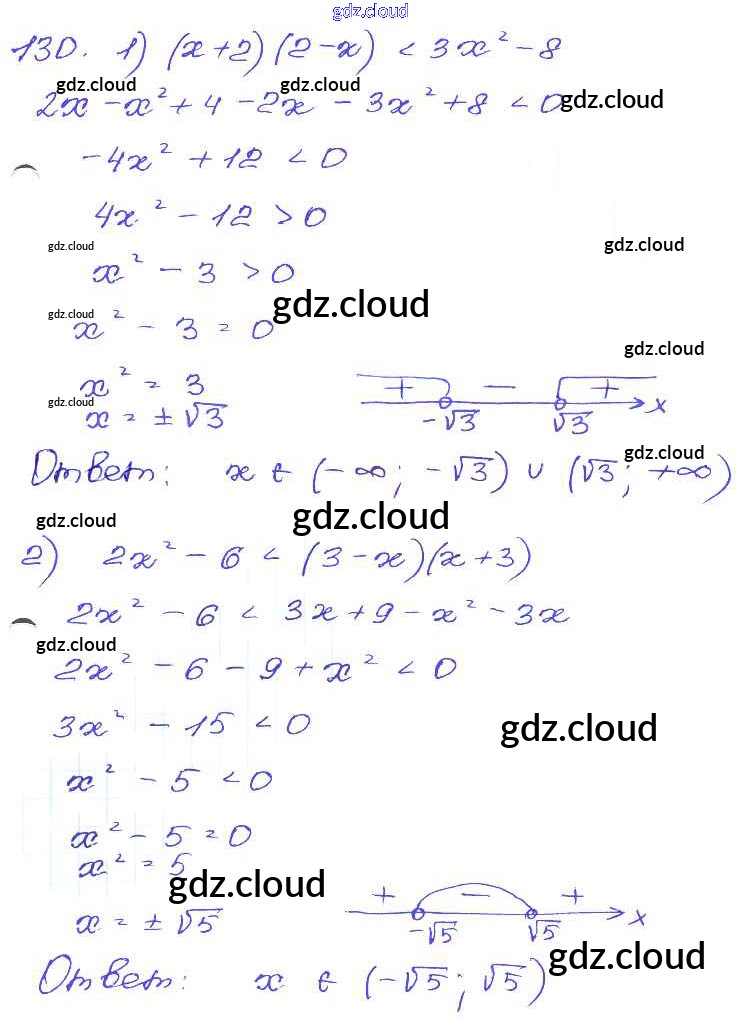 gdz.cloud
130. 1) (x+2)(2-x) < 3x² - 8
gdz.cloud gdz.cloud
2x - x² + 4 - 2x - 3x² + 8 < 0 gdz.cloud
-4x² + 12 < 0
4x² - 12 > 0
gdz.cloud gdz.cloud
x² - 3 > 0
gdz.cloud
gdz.cloud
x² - 3 = 0
gdz.cloud
x² = 3
+ - +
gdz.cloud
x = ± √3
-√3 √3 x
gdz.cloud
Ответ: x ∈ (-∞; -√3) ∪ (√3; +∞)
gdz.cloud gdz.cloud
2) 2x² - 6 < (3-x)(x+3)
2x² - 6 < 3x + 9 - x² - 3x
gdz.cloud
2x² - 6 - 9 + x² < 0
3x² - 15 < 0
gdz.cloud
x² - 5 < 0
x² - 5 = 0
x² = 5
gdz.cloud
+ - +
x = ± √5
-√5 √5 x
gdz.cloud
Ответ: x ∈ (-√5; √5)